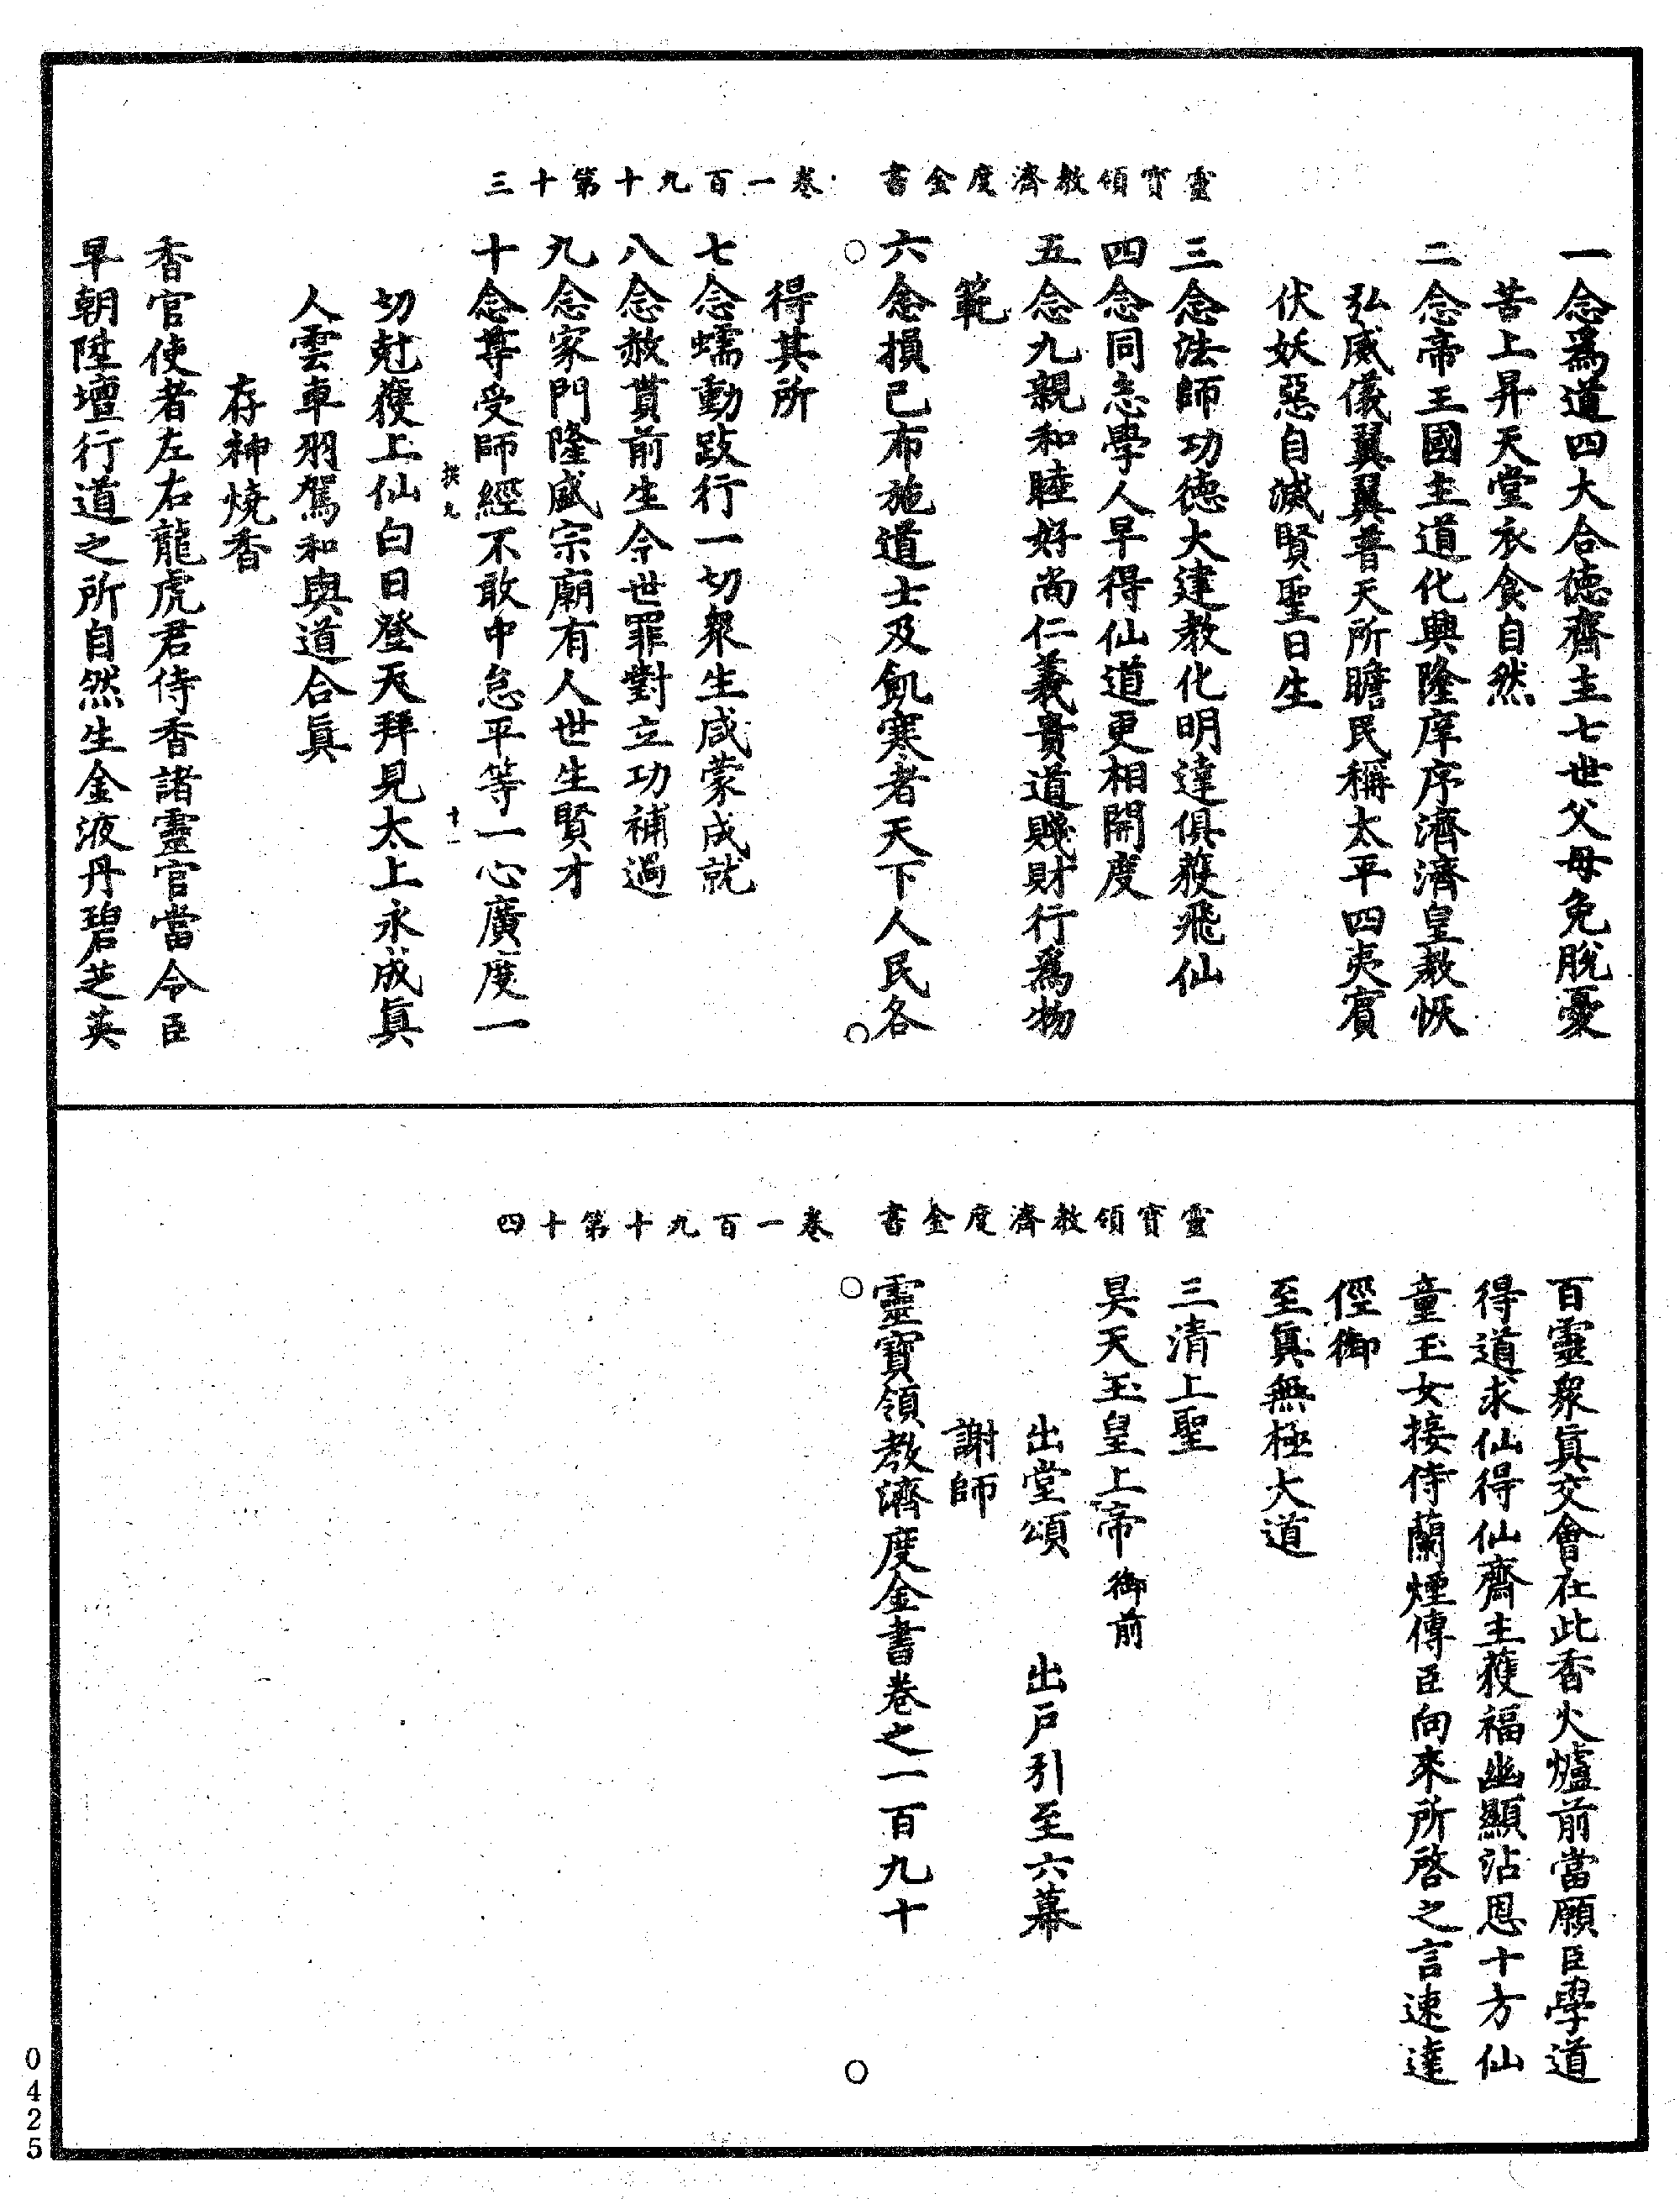 靈寶領教濟度金書　卷一百九十第十三
一念爲道四大合德齋主七世父母免脫憂
苦上昇天堂衣食自然
二念帝王國主道化興隆庠序濟濟皇教恢
弘威儀翼翼普天所瞻民稱太平四夷賓
伏妖惡自滅賢聖日生
三念法師功德大建教化明達俱獲飛仙
四念同志學人早得仙道更相開度
五念九親和睦好尚仁義貴道賤財行爲物
範
六念損己布施道士及飢寒者天下人民各
得其所
七念蠕動跂行一切衆生咸蒙成就
八念赦貰前生今世罪對立功補過
九念家門隆盛宗廟有人世生賢才
十念尊受師經不敢中怠平等一心廣度一
拱九　十一
切尅獲上仙白日登天拜見太上永成眞
人雲車羽駕和與道合眞
存神燒香
香官使者左右龍虎君侍香諸靈官當令臣
早朝陞壇行道之所自然生金液丹碧芝英
靈寶領教濟度金書　卷一百九十第十四
百靈衆眞交會在此香火爐前當願臣學道
得道求仙得仙齋主獲福幽顯沾恩十方仙
童玉女接侍蘭煙傳臣向來所啓之言速達
徑御
至眞無極大道
三清上聖
昊天玉皇上帝御前
出堂頌　出戶引至六幕
謝師
靈寶領教濟度金書卷之一百九十
0425